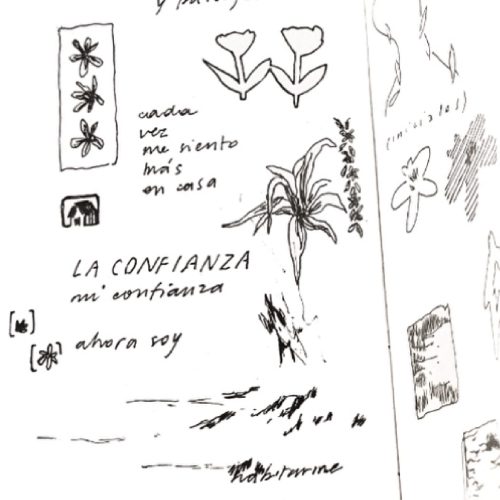 cada
vez
me siento
más
en casa
LA CONFIANZA
mi confianza
ahora soy
habitarme
(iniciales)